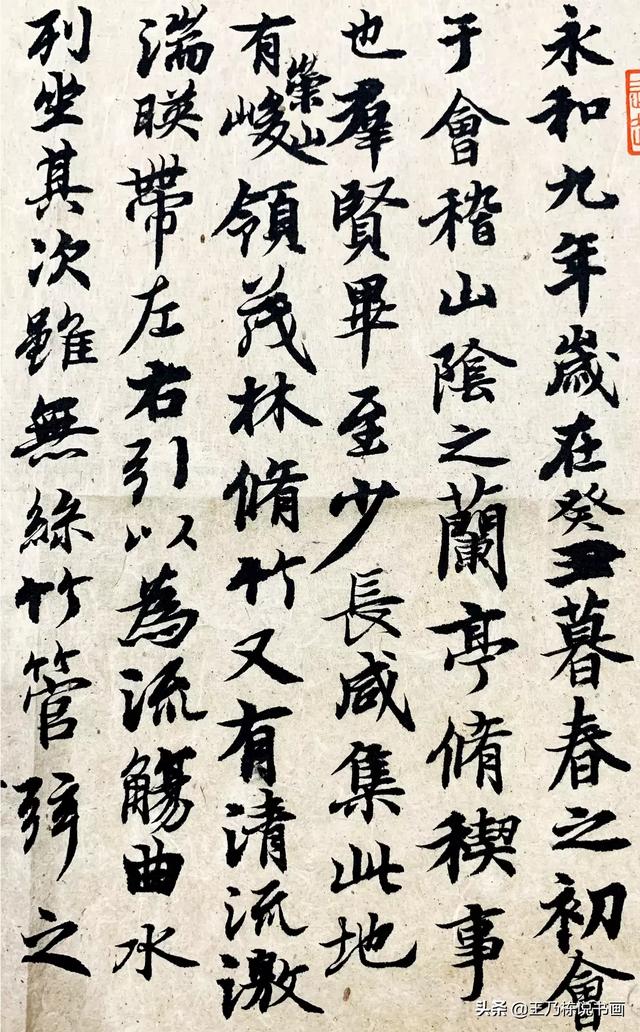 永和九年歲在癸丑暮春之初會
于會稽山陰之蘭亭脩稧事
也羣賢畢至少長咸集此地
有崇山峻領茂林脩竹又有清流激
湍暎帶左右引以為流觴曲水
列坐其次雖無絲竹管弦之
头条 @王乃栋说书画